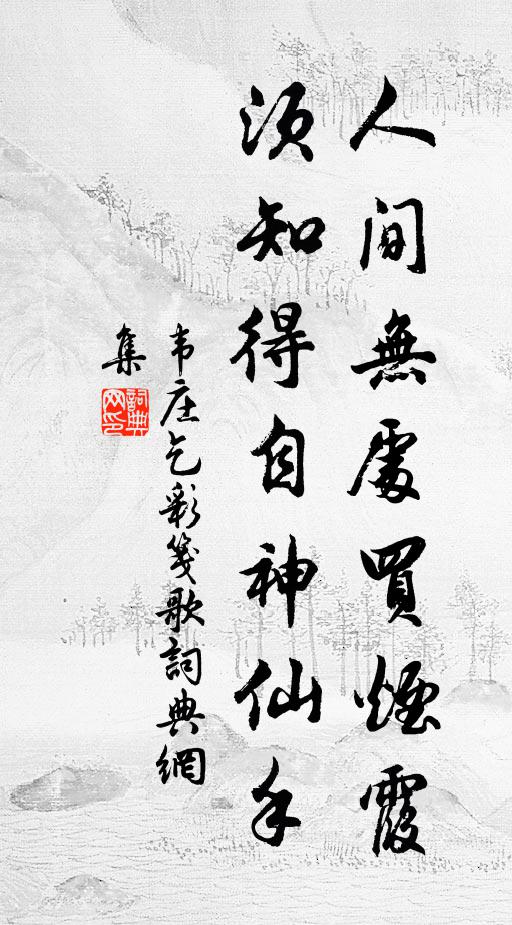 人間無處買煙霞
須知得自神仙手
韦庄乞彩箋歌詞典網
集
詞典
网印